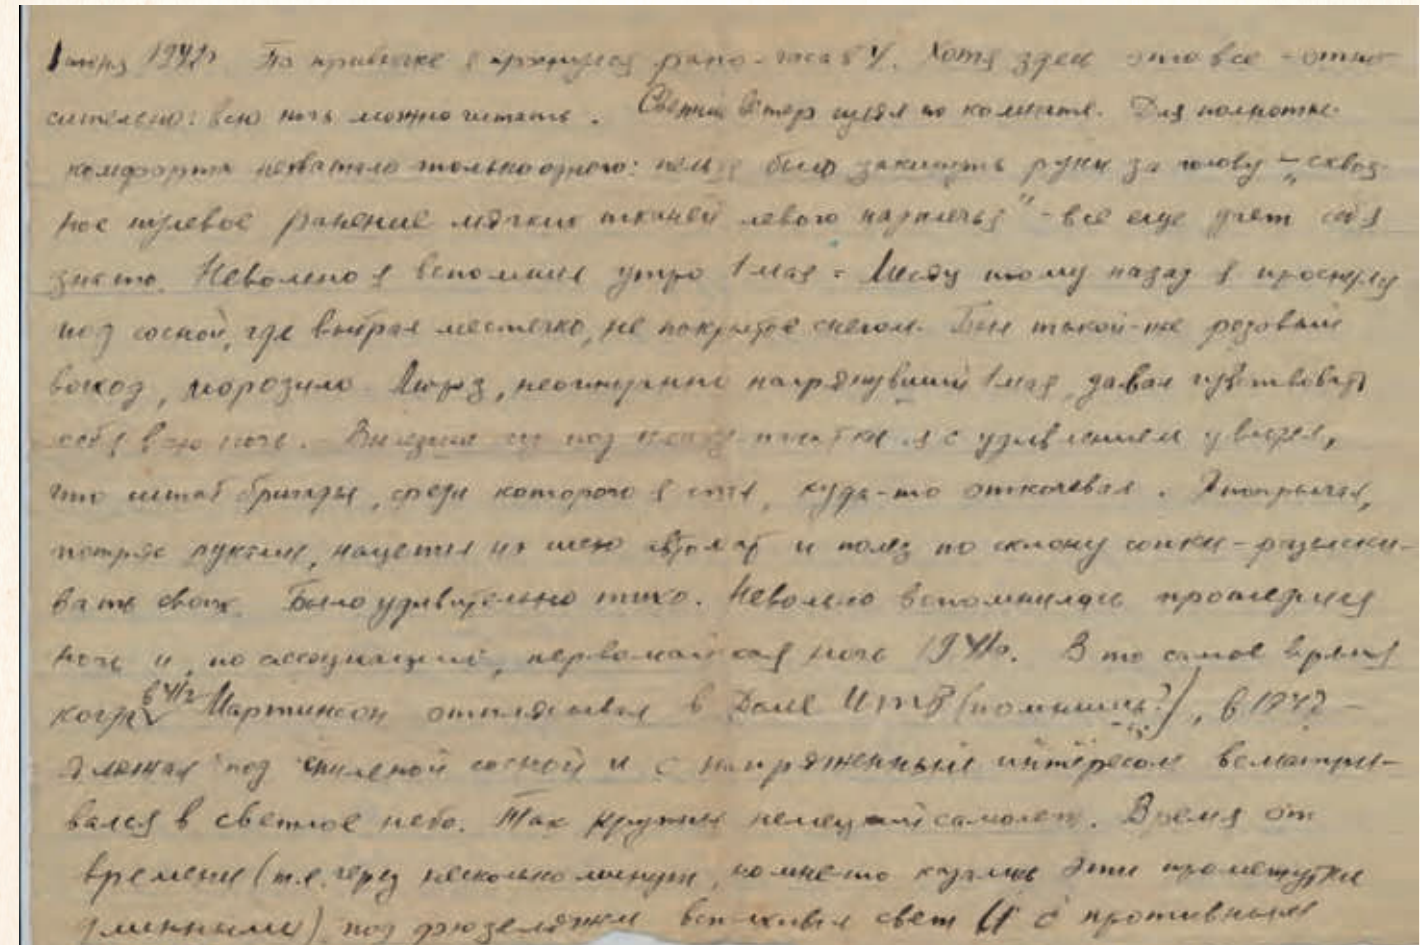 1 июня 1942г. По привычке я проснулся рано - часа в 4. Хотя здесь это все - отно-
сительно: всю ночь можно читать. Свежий ветер гулял по комнате. Для полноты
комфорта нехватало только одного: нельзя было закинуть руки за голову - „сквоз-
ное пулевое ранение мягких тканей левого надплечья" - все еще дает себя
знать. Невольно я вспомнил утро 1 мая. Месяц тому назад я проснулся
под сосной, где выбрал местечко, не покрытое снегом. Был такой-же розовый
восход, морозило. Мороз, неожиданно нагрянувший 1 мая, давал чувствовать
себя всю ночь. Вылезши из под палатки я с удивлением увидел,
что штаб бригады, среди которого я спал, куда-то откочевал. Я попрыгал,
потряс руками, нацепил на шею автомат и полез по склону сопки - разыски-
вать своих. Было удивительно тихо. Невольно вспомнилась прошедшая
ночь и, по ассоциации, первомайская ночь 1941г. В то самое время
когда в 41г Мартинсон отплясывал в Доме ИТР (помнишь?), в 1942 -
я лежал под сосной и с напряженным интересом всматри-
вался в светлое небо. Там кружил немецкий самолет. Время от
времени (т.е. через несколько минут, но мне-то казались эти промежутки
длинными) под фюзеляжем вспыхивал свет и с противным